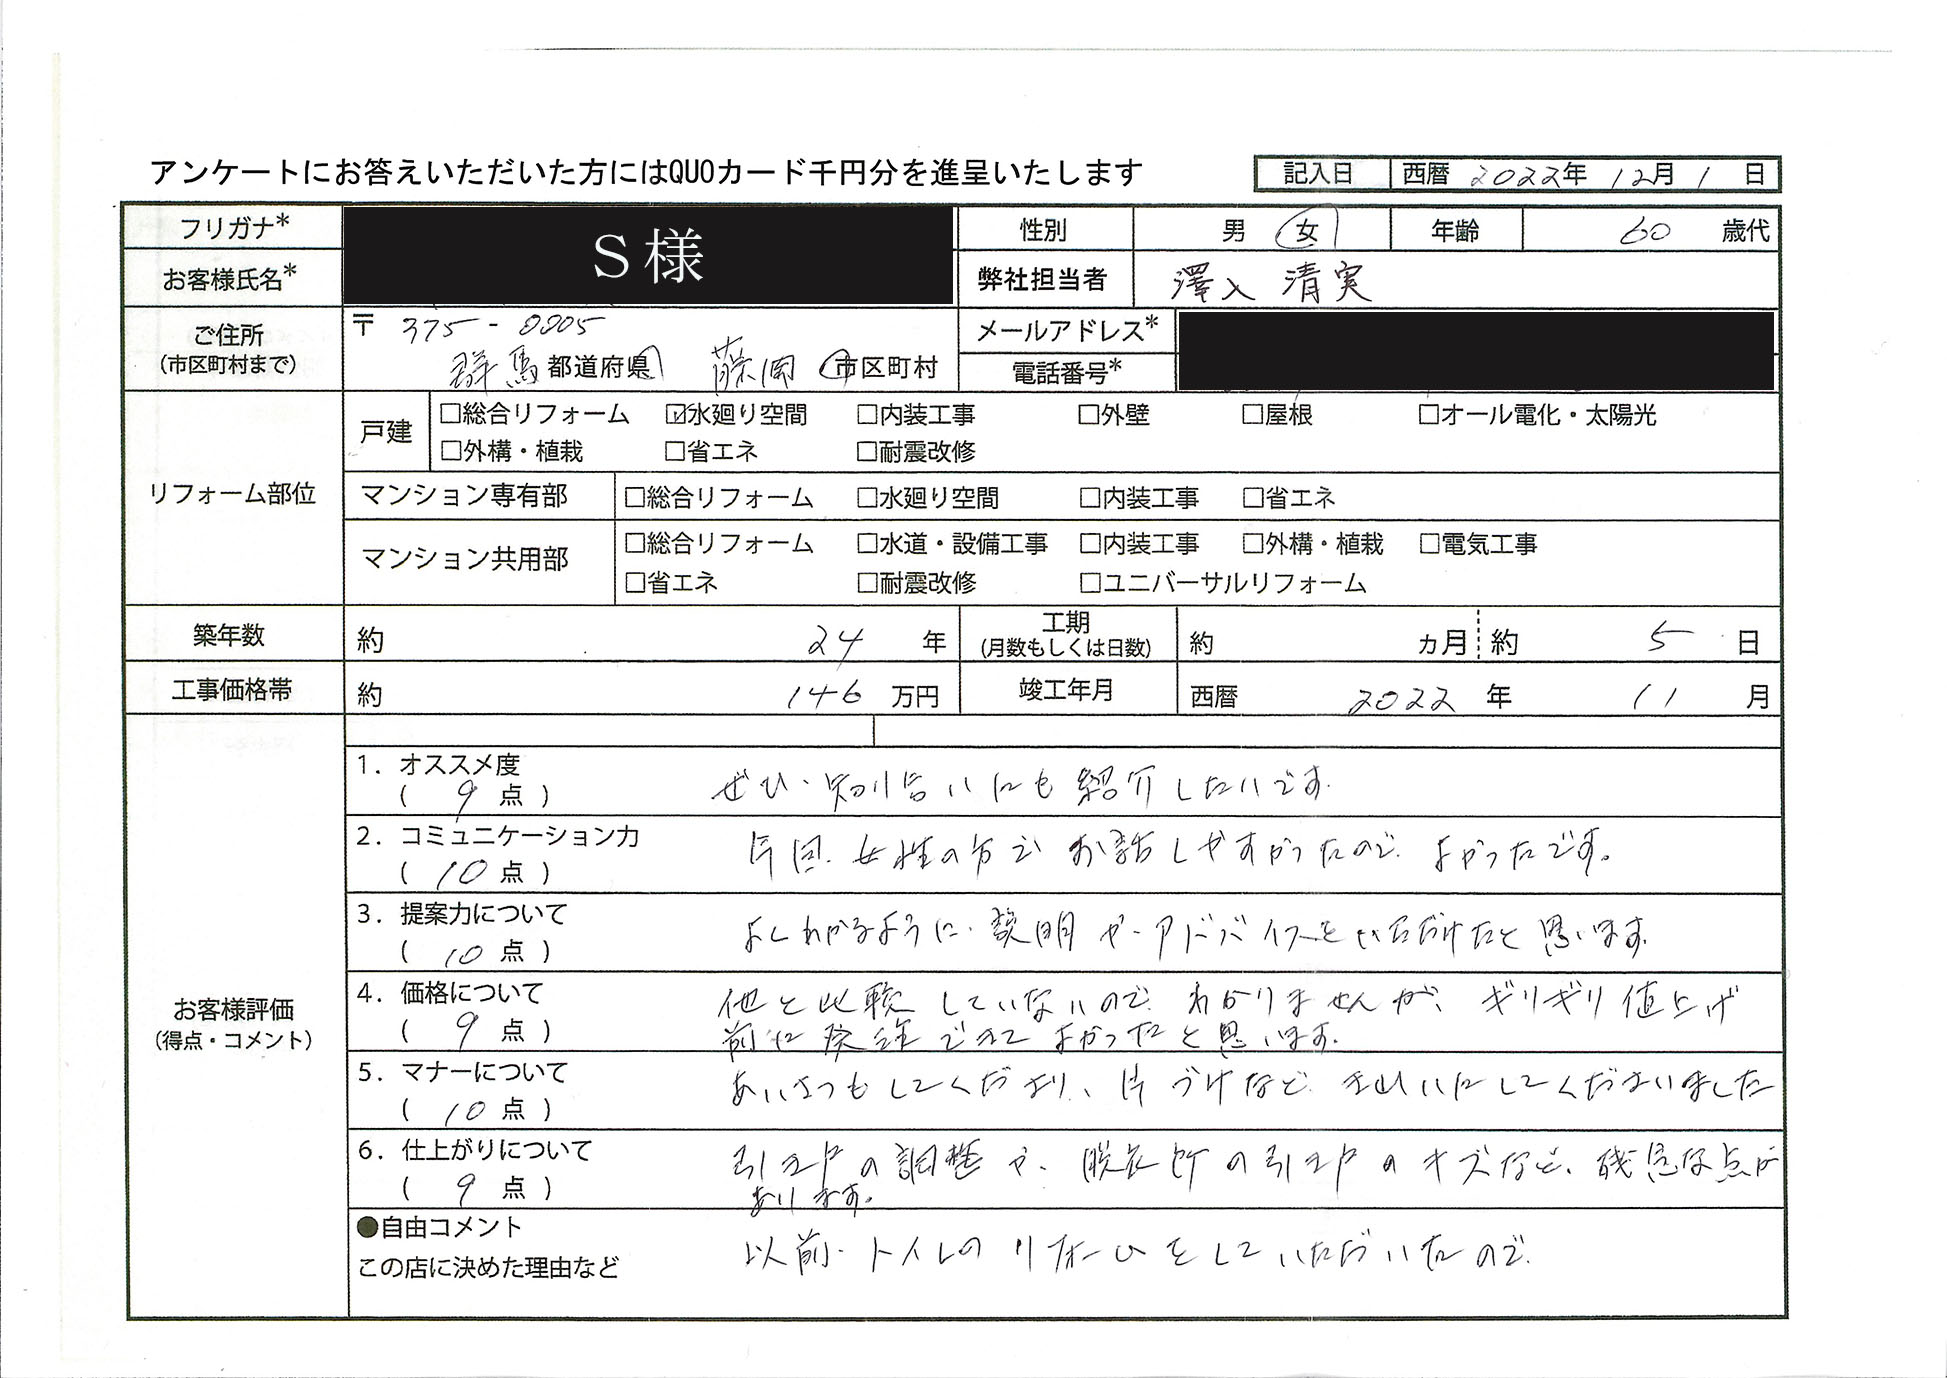 アンケートにお答えいただいた方にはQUOカード千円分を進呈いたします
記入日 西暦 2022年 12月 1 日
フリガナ* S様 性別 男 女 年齢 60 歳代
お客様氏名* 弊社担当者 澤入 清実
ご住所 〒 375-0005 メールアドレス*
(市区町村まで) 群馬 都道府県 藤岡 市区町村 電話番号*
リフォーム部位
戸建 □総合リフォーム ☑水廻り空間 □内装工事 □外壁 □屋根 □オール電化・太陽光
□外構・植栽 □省エネ □耐震改修
マンション専有部 □総合リフォーム □水廻り空間 □内装工事 □省エネ
マンション共用部 □総合リフォーム □水道・設備工事 □内装工事 □外構・植栽 □電気工事
□省エネ □耐震改修 □ユニバーサルリフォーム
築年数 約 24 年 工期 (月数もしくは日数) 約 ヵ月 約 5 日
工事価格帯 約 146 万円 竣工年月 西暦 2022 年 11 月
お客様評価
(得点・コメント)
1. オススメ度
( 9 点 ) ぜひ、知り合いにも紹介したいです。
2. コミュニケーション力
( 10 点 ) 今回、女性の方でお話しやすかったので、よかったです。
3. 提案力について
( 10 点 ) よくわかるように、説明や、アドバイスをいただけたと思います。
4. 価格について
( 9 点 ) 他と比較していないので、わかりませんが、ギリギリ値上げ
前に発注できてよかったと思います。
5. マナーについて
( 10 点 ) あいさつもしてくださり、片づけなど、きれいにしてくださいました
6. 仕上がりについて
( 9 点 ) 引き戸の調整や、脱衣所の引き戸のキズなど、残念な点が
あります。
●自由コメント
この店に決めた理由など 以前、トイレのリフォームをしていただいたので、